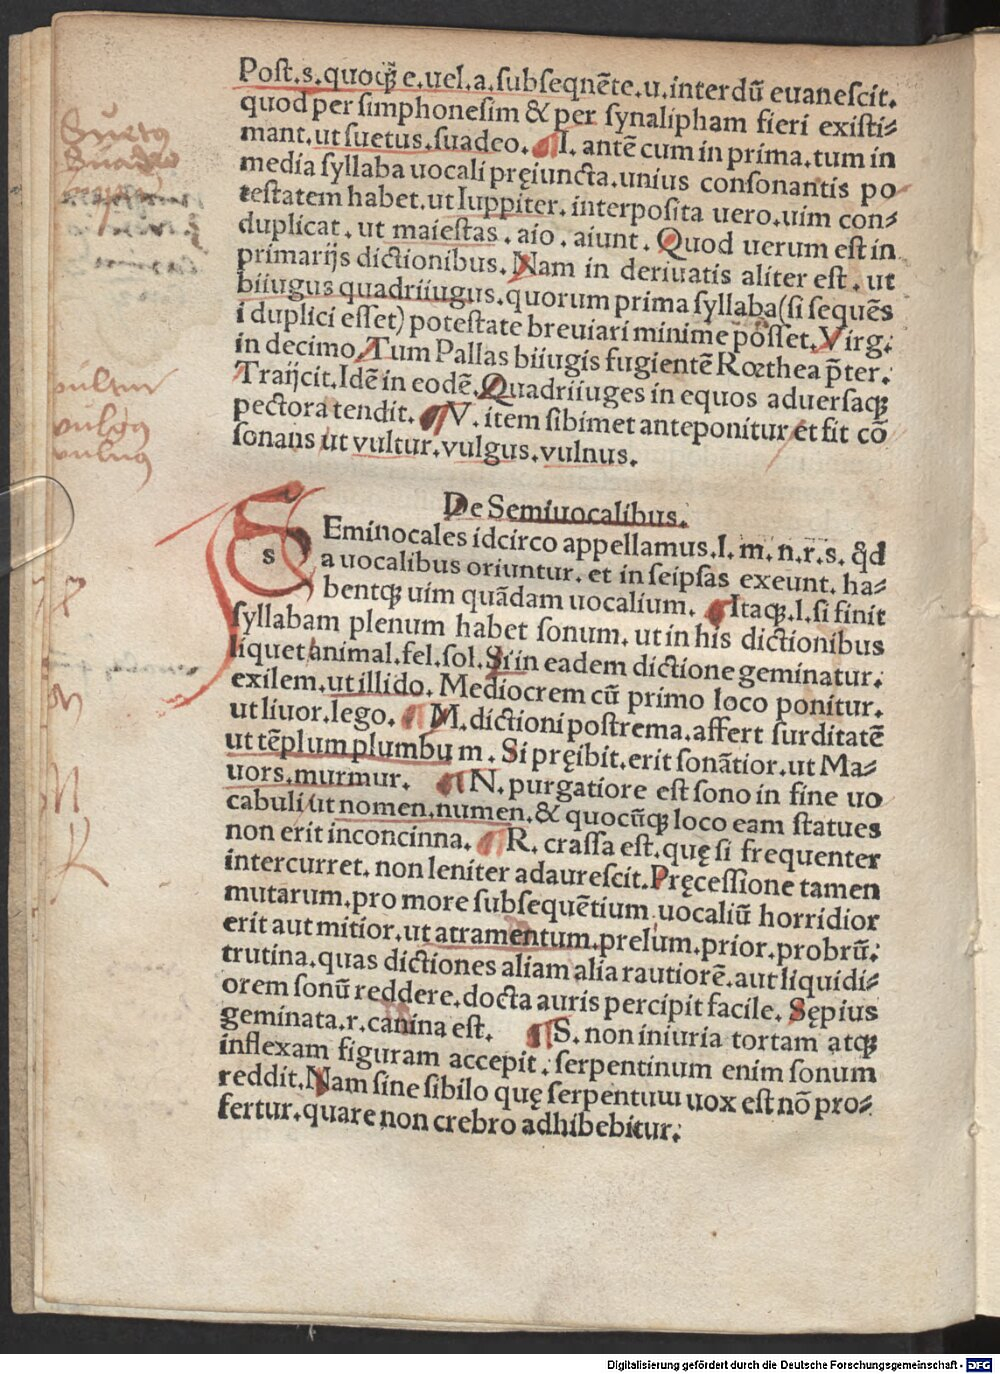 Post.s.quoqꝫ e.uel.a.subseqnēte.u.interdū euanescit.
quod per simphonesim & per synalipham fieri existi⸗
mant.ut suetus.suadeo. ¶I. antē cum in prima.tum in
media syllaba uocali pręiuncta.unius consonantis po
testatem habet.ut Iuppiter.interposita uero.uim con⸗
duplicat.ut maiestas.aio.aiunt.Quod uerum est in
primarijs dictionibus.Nam in deriuatis aliter est.ut
biiugus quadriiugus.quorum prima syllaba(si sequēs
i duplici esset)potestate breuiari minime posset.Virg:
in decimo.Tum Pallas biiugis fugientē Rœthea p̄ter.
Traijcit.Idē in eodē.Quadriiuges in equos aduersaqꝫ
pectora tendit. ¶V.item sibimet anteponitur et fit cō
sonans ut vultur.vulgus.vulnus.
De Semiuocalibus.
s
Eminocales idcirco appellamus.l.m.n.r.s.qd̄
a uocalibus oriuntur.et in seipsas exeunt.ha⸗
bentqꝫ uim quādam uocalium. ¶Itaqꝫ.l.si finit
syllabam plenum habet sonum.ut in his dictionibus
liquet animal.fel.sol.Si in eadem dictione geminatur.
exilem.ut illido.Mediocrem cū primo loco ponitur.
ut liuor.lego. ¶M.dictioni postrema.affert surditatē
ut tēplum plumbum.Si pręibit.erit sonātior.ut Ma⸗
uors.murmur. ¶N.purgatiore est sono in fine uo
cabuli ut nomen.numen.& quocūqꝫ loco eam statues
non erit inconcinna. ¶R. crassa est.quę si frequenter
intercurret.non leniter adaurescit.Pręcessione tamen
mutarum.pro more subsequētium uocaliū horridior
erit aut mitior.ut atramentum.prelum.prior.probrū.
trutina.quas dictiones aliam alia rautiorē.aut liquidi⸗
orem sonū reddere.docta auris percipit facile.Sępius
geminata.r.canina est. ¶S.non iniuria tortam atqꝫ
inflexam figuram accepit.serpentinum enim sonum
reddit.Nam sine sibilo quę serpentum uox est nō pro⸗
fertur.quare non crebro adhibebitur.
Suetus
Suadeo
vultur
vulgus
vulnus
M
N
R
Digitalisierung gefördert durch die Deutsche Forschungsgemeinschaft - DFG